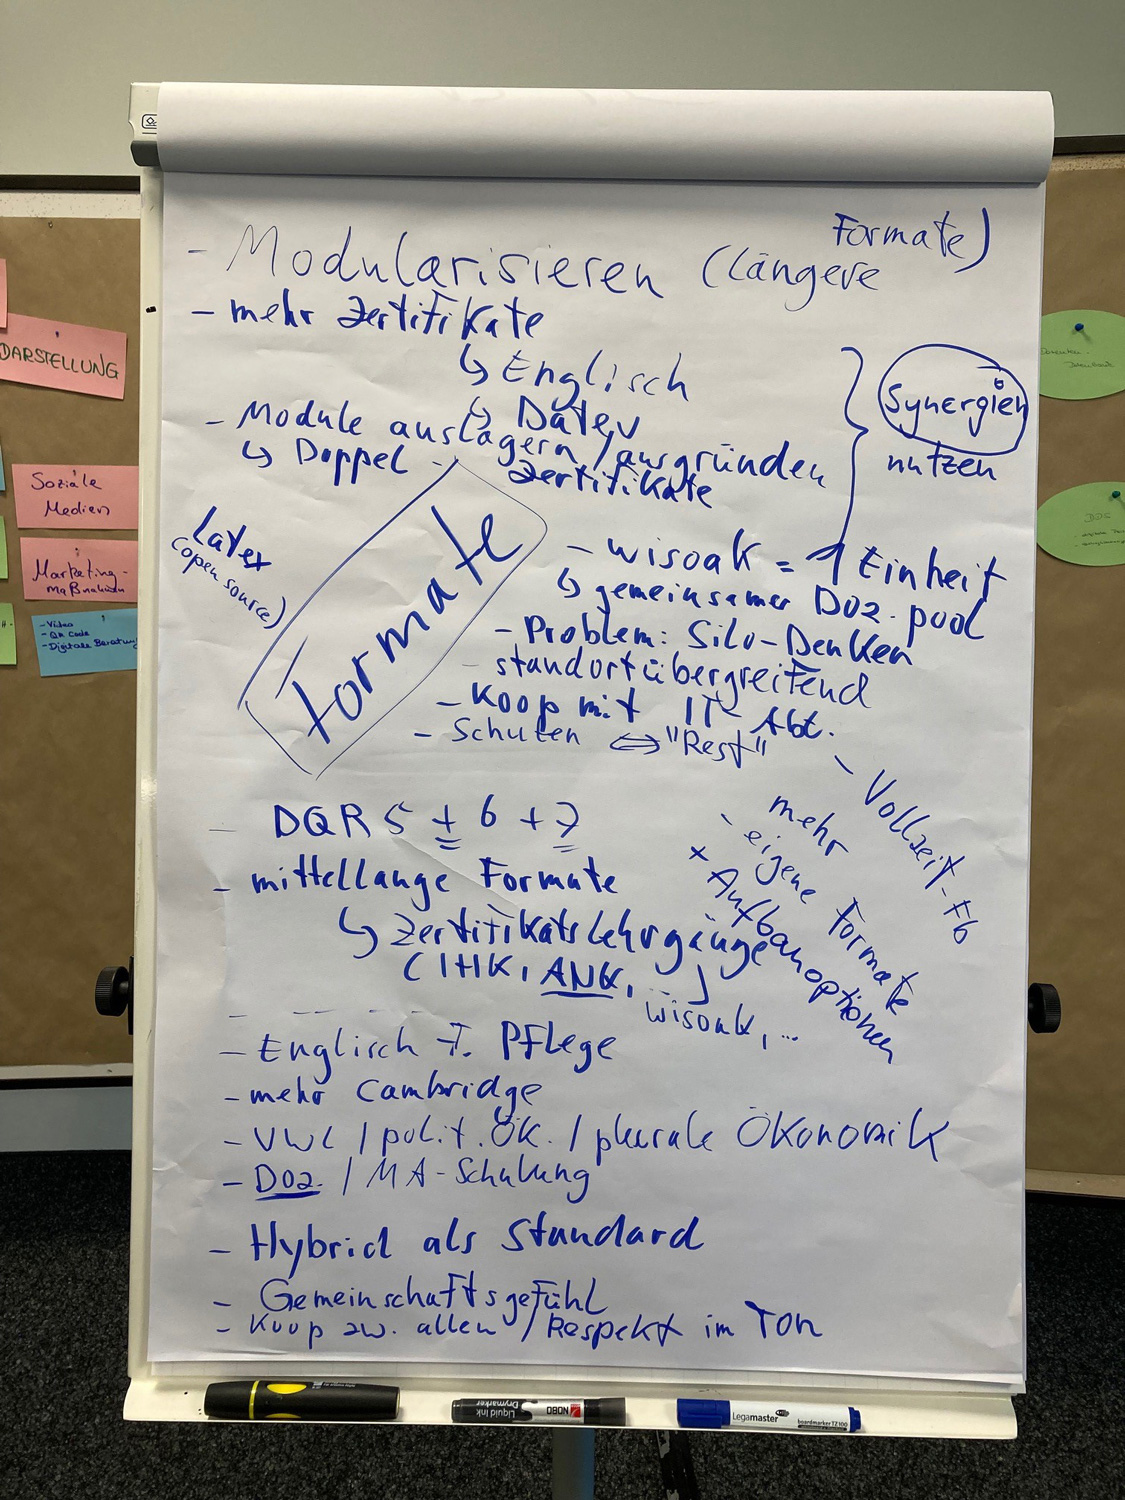 Formate)
- Modularisieren (Längere
- mehr Zertifikate
↳ Englisch
↳ Datev
- Module auslagern / ausgründen
↳ Doppel-
Zertifikate
Synergien
nutzen
Formate
Latex
(open source)
- wisoak = 1 Einheit
↳ gemeinsamer Doz.pool
- Problem: Silo-Denken
- standortübergreifend
- Koop mit IT-Abt.
- Schulen ⇔ "Rest"
- Vollzeit-Fb
mehr
- eigene Formate
+ Aufbauoptionen
- DQR 5 + 6 + 7
- mittellange Formate
↳ Zertifikatslehrgänge
(IHK, ANK, ...)
wisoak, ...
- Englisch f. Pflege
- mehr Cambridge
- VWL / polit. Ök. / plurale Ökonomik
- Doz. / MA-Schulung
- Hybrid als Standard
- Gemeinschaftsgefühl
- Koop zw. allen / Respekt im Ton
DARSTELLUNG
Soziale
Medien
Marketing-
maßnahmen
- Video
- QR Code
- Digitale Beratung
Liquid Ink
Drymarker
NOBO
Legamaster
boardmarker TZ 100